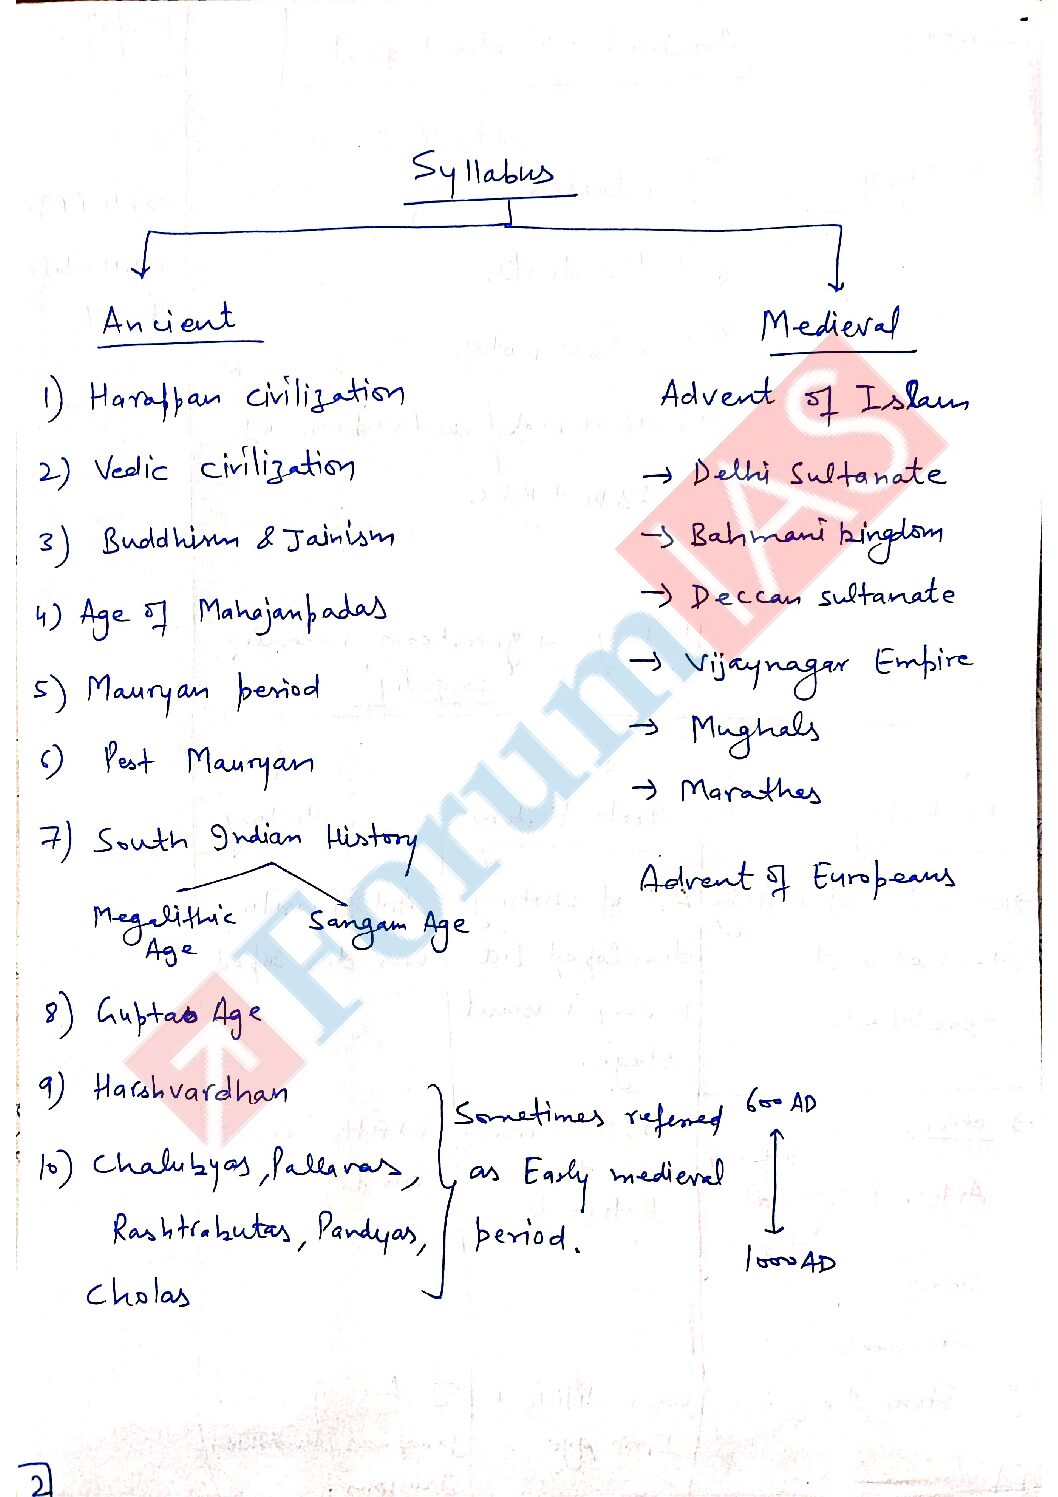 Syllabus
Ancient
1) Harappan civilization
2) Vedic civilization
3) Buddhism & Jainism
4) Age of Mahajanpadas
5) Mauryan period
6) Post Mauryan
7) South Indian History
Megalithic Age
Sangam Age
8) Gupta Age
9) Harshvardhan
10) Chalukyas, Pallavas,
Rashtrakutas, Pandyas,
Cholas
Sometimes referred
as Early medieval
period.
600 AD
1000 AD
Medieval
Advent of Islam
→ Delhi Sultanate
→ Bahmani kingdom
→ Deccan sultanate
→ Vijaynagar Empire
→ Mughals
→ Marathas
Advent of Europeans
ForumIAS
2